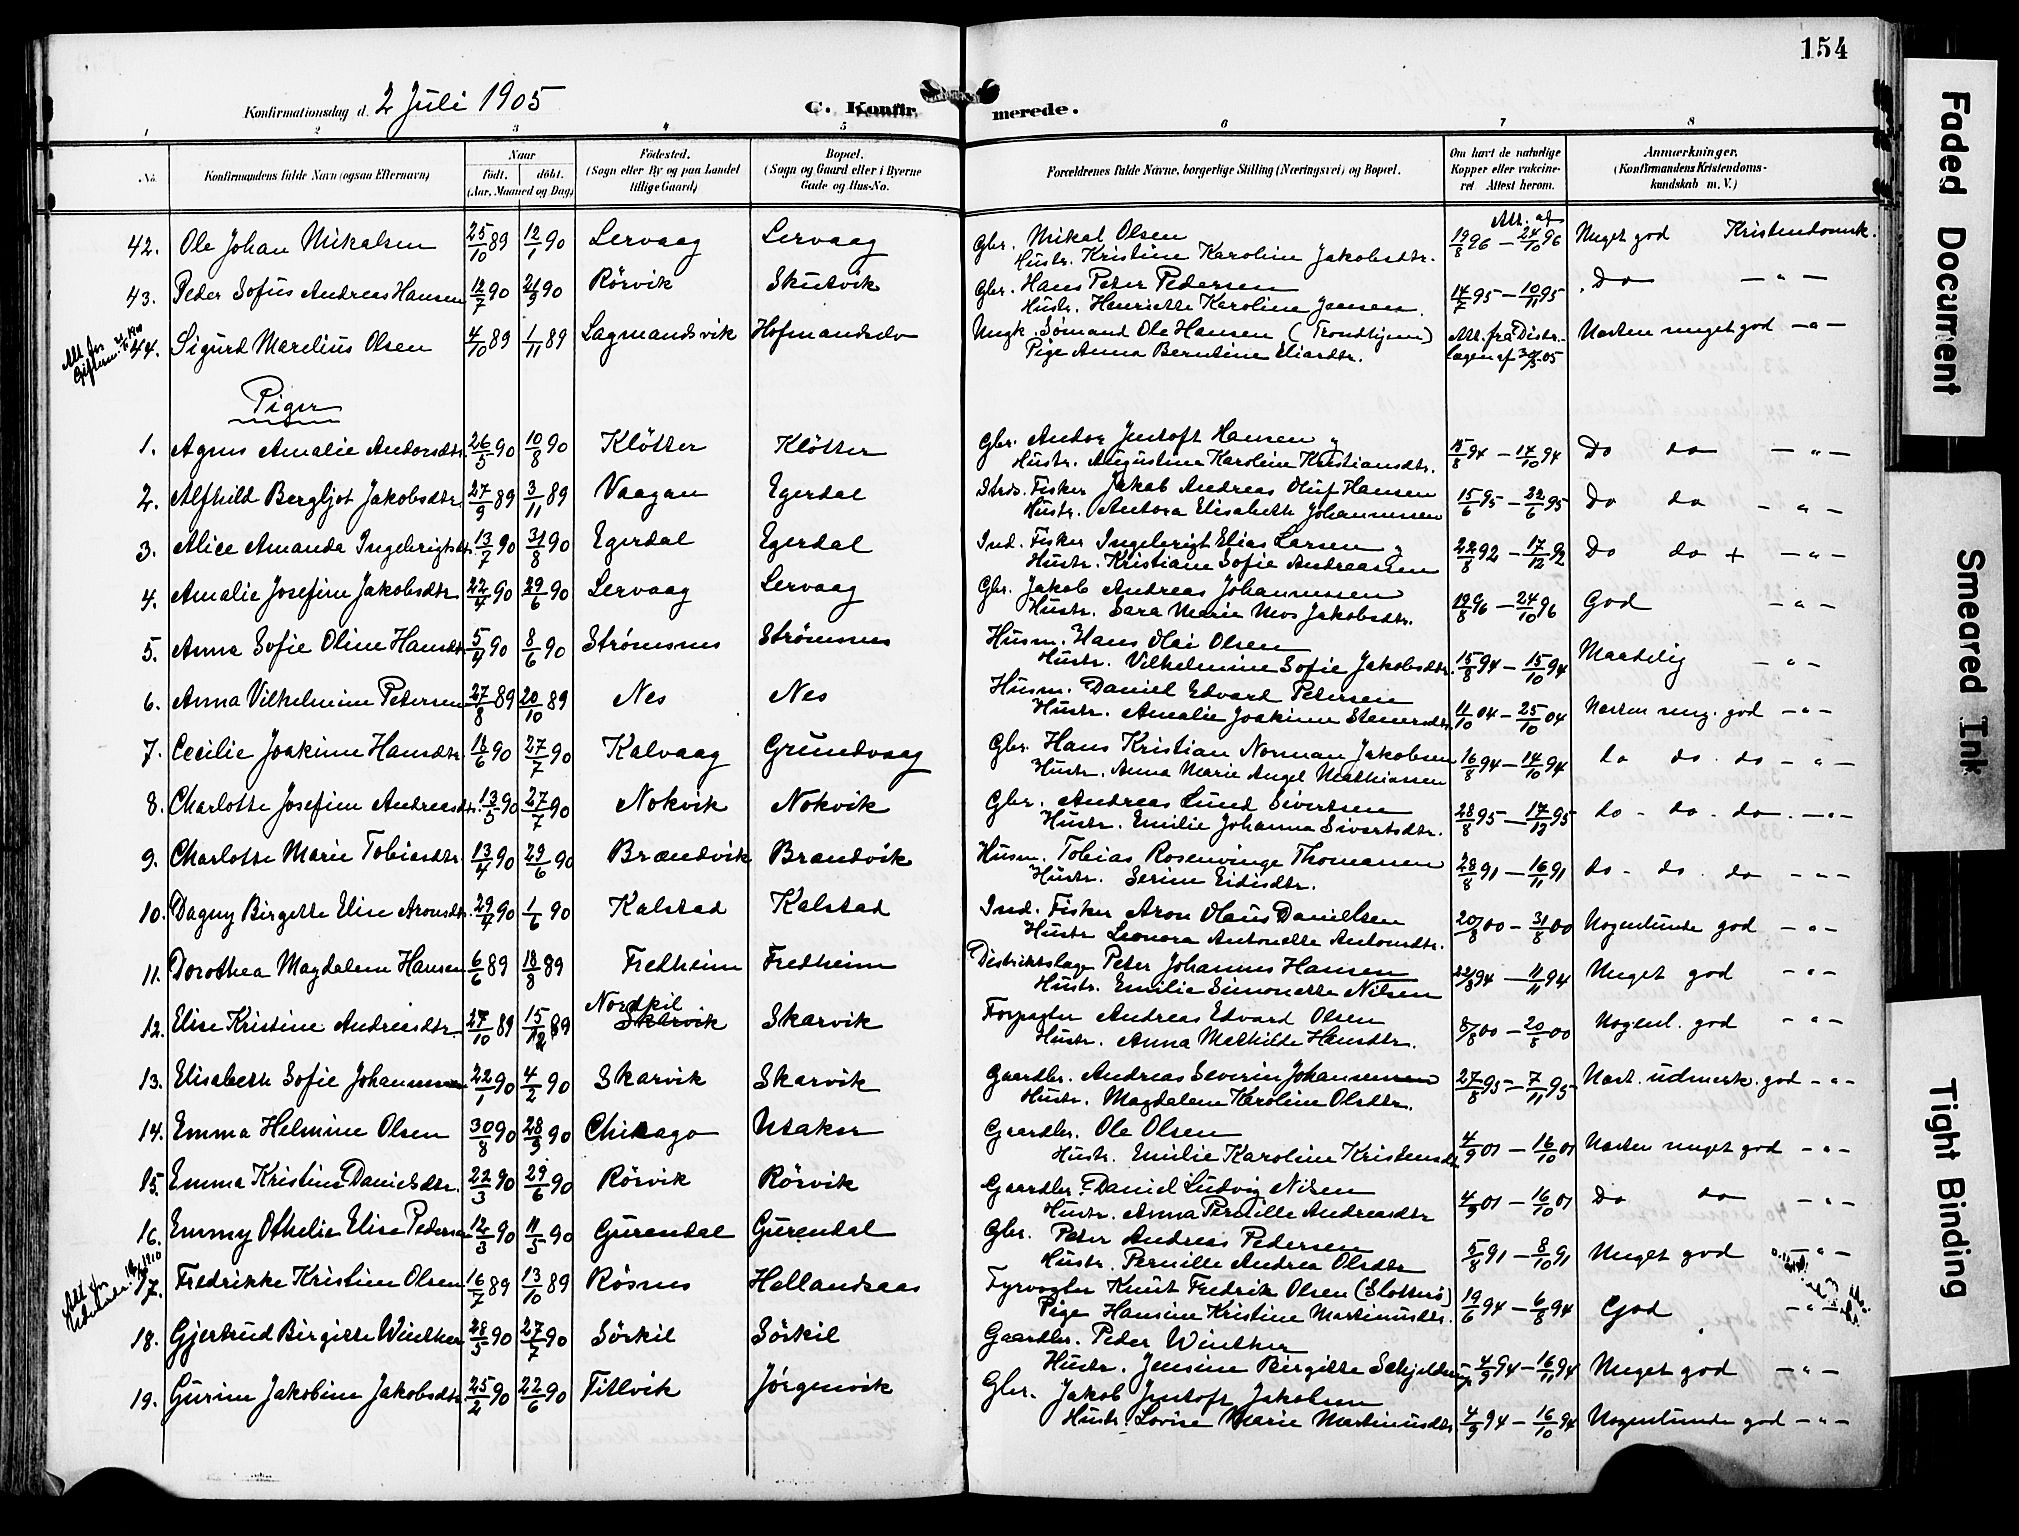 154
Konfirmationsdag d. 2 Juli 1905
C. Konfir merede.
1 2 3 4 5 6 7 8
No. Konfirmandens fulde Navn (ogsaa Efternavn)
Naar født. døbt. (Aar, Maaned og Dag)
Fødested. (Sogn eller By og paa Landet tillige Gaard)
Bopæl. (Sogn og Gaard eller i Byerne Gade og Hus-No.
Forældrenes fulde Navne, borgerlige Stilling (Næringsvei) og Bopæl.
Om havt de naturlige Kopper eller vakcineret Attest herom.
Anmærkninger. (Konfirmandens Kristendomskundskab m. V.)
42. Ole Johan Mikalsen 25/10 89 12/1 90 Lervaag Lervaag Gbr. Mikal Olsen Att. af 19/8 96 — 24/10 96 Meget god Kristendomsk.
Hustr. Kristine Karoline Jakobsdtr.
43. Peder Sofus Andreas Hansen 12/7 90 21/9 90 Rörvik Skutvik Gbr. Hans Peter Pedersen 14/7 95 — 10/11 95 Do — " —
Hustr. Henriette Karoline Jensen.
44. Sigurd Marelius Olsen 4/10 89 1/11 89 Lagmandsvik Ungk. Sømand Ole Hansen (Trondhjem) Att. fra Distr. Næsten meget god — " —
Pige Anna Berntine Eliasdtr. lægen af 30/5 05
Piger
1. Agnes Amalie Andorsdtr. 26/5 90 10/8 90 Klötter Klötter Gbr. Andor Jentoft Hansen 15/8 94 — 14/10 94 Do do — " —
Hustr. Augustine Karoline Kristiansdtr.
2. Alfhild Bergljot Jakobsdtr. 27/9 89 3/11 89 Vaagan Egerdal Strds. Fisker Jakob Andreas Oluf Hansen 15/6 95 — 22/6 95 Do do — " —
Hustr. Antora Elisabeth Johannessen
3. Alice Amanda Ingebrigtsdtr. 13/7 90 31/8 90 Egerdal Egerdal Ind. Fisker Ingebrigt Elias Larsen 22/8 92 — 17/12 92 Do do + — " —
Hustr. Kristiane Sofie Andreassen
4. Amalie Josefine Jakobsdtr. 22/4 90 29/6 90 Lervaag Lervaag Gbr. Jakob Andreas Johannessen 19/8 96 — 24/10 96 God — " —
Hustr. Sara Marie Mos Jakobsdtr.
5. Anna Sofie Oline Hansdtr. 5/4 90 8/6 90 Strømsnes Strömsnes Husm. Hans Olai Olsen 15/8 94 — 15/10 94 Maadelig — " —
Hustr. Vilhelmine Sofie Jakobsdtr.
6. Anna Vilhelmine Petersen 27/8 89 20/10 89 Nes Nes Husm. Daniel Edvard Petersen 11/10 04 — 25/10 04 Næsten meg. god — " —
Hustr. Amalie Joakime Steensdtr.
7. Cecilie Joakime Hansdtr. 18/6 90 27/7 90 Kalvaag Grundvaag Gbr. Hans Kristian Norman Jakobsen 16/8 94 — 14/10 94 do do. do — " —
Hustr. Anna Marie Angel Mathiassen
8. Charlotte Josefine Andreasdtr. 13/5 90 27/7 90 Nokvik Nokvik Gbr. Andreas Lund Sivertsen 28/8 95 — 17/12 95 do - do. do — " —
Hustr. Emilie Johanna Sivertsdtr.
9. Charlotte Marie Tobiasdtr. 13/4 90 29/6 90 Brændvik Brændvik Husm. Tobias Rosenvinge Thomassen 28/8 91 — 16/11 91 do - do. do — " —
Hustr. Serine Eidisdtr.
10. Dagny Birgitte Elise Aronsdtr. 29/4 90 1/6 90 Kalstad Kalstad Ind. Fisker Aron Olaus Danielsen 20/8 00 — 31/8 00 Nogenlunde god — " —
Hustr. Leonora Antonette Antonsdtr.
11. Dorothea Magdalena Hansen 6/6 89 18/8 89 Fredheim Fredheim Distriktslæge Peter Johannes Hansen 22/8 94 — 11/11 94 Meget god — " —
Hustr. Emilie Simonette Nilsen
12. Elise Kristine Andreasdtr. 27/10 89 15/12 89 Nordkil Skarvik Skarvik Forpagter Andreas Edvard Olsen 8/8 00 — 20/8 00 Nogenl. god — " —
Hustr. Anna Mathilde Hansdtr.
13. Elisabeth Sofie Johannessen 22/1 90 4/2 90 Skarvik Skarvik Gaardbr. Andreas Severin Johannessen 27/8 95 — 7/11 95 Næst. udmerk. god — " —
Hustr. Magdalene Karoline Olsdtr.
14. Emma Helmine Olsen 30/8 90 28/9 90 Chikago Gaardbr. Ole Olsen 4/9 01 — 16/10 01 Næsten meget god — " —
Hustr. Emilie Karoline Kristensdtr.
15. Emma Kristine Danielsdtr. 22/3 90 29/6 90 Rörvik Rörvik Gaardbr. Daniel Ludvig Nilsen 4/9 01 — 16/10 01 Do do — " —
Hustr. Anna Pernille Andreasdtr
16. Emmy Othelie Elise Pedersen 12/3 90 11/5 90 Gurendal Gurendal Gbr. Peter Andreas Pedersen 5/8 91 — 8/10 91 Meget god — " —
Hustr. Pernille Andrea Olsdtr
17. Fredrikke Kristine Olsen 16/7 89 13/10 89 Røsnes Hellandsaas Fyrvogter Knut Fredrik Olsen (Slotterö) 19/6 94 — 6/8 94 God — " —
Pige Hansine Kristine Martinusdtr.
18. Gjertrud Birgitte Winther 28/5 90 27/7 90 Sörkil Sörkil Gaardbr. Peder Winther
Hustr. Jensine Birgitte Schjelderup 4/9 94 — 16/11 94 Meget god — " —
19. Gurine Jakobine Jakobsdtr 25/2 90 22/6 90 Titlvik Jörgenvik Gbr. Jakob Jentoft Jakobsen
Hustr. Lovise Marie Martinusdtr. 4/9 94 — 16/10 94 Nogenlunde god — " —
Faded Document
Smeared Ink
Tight Binding